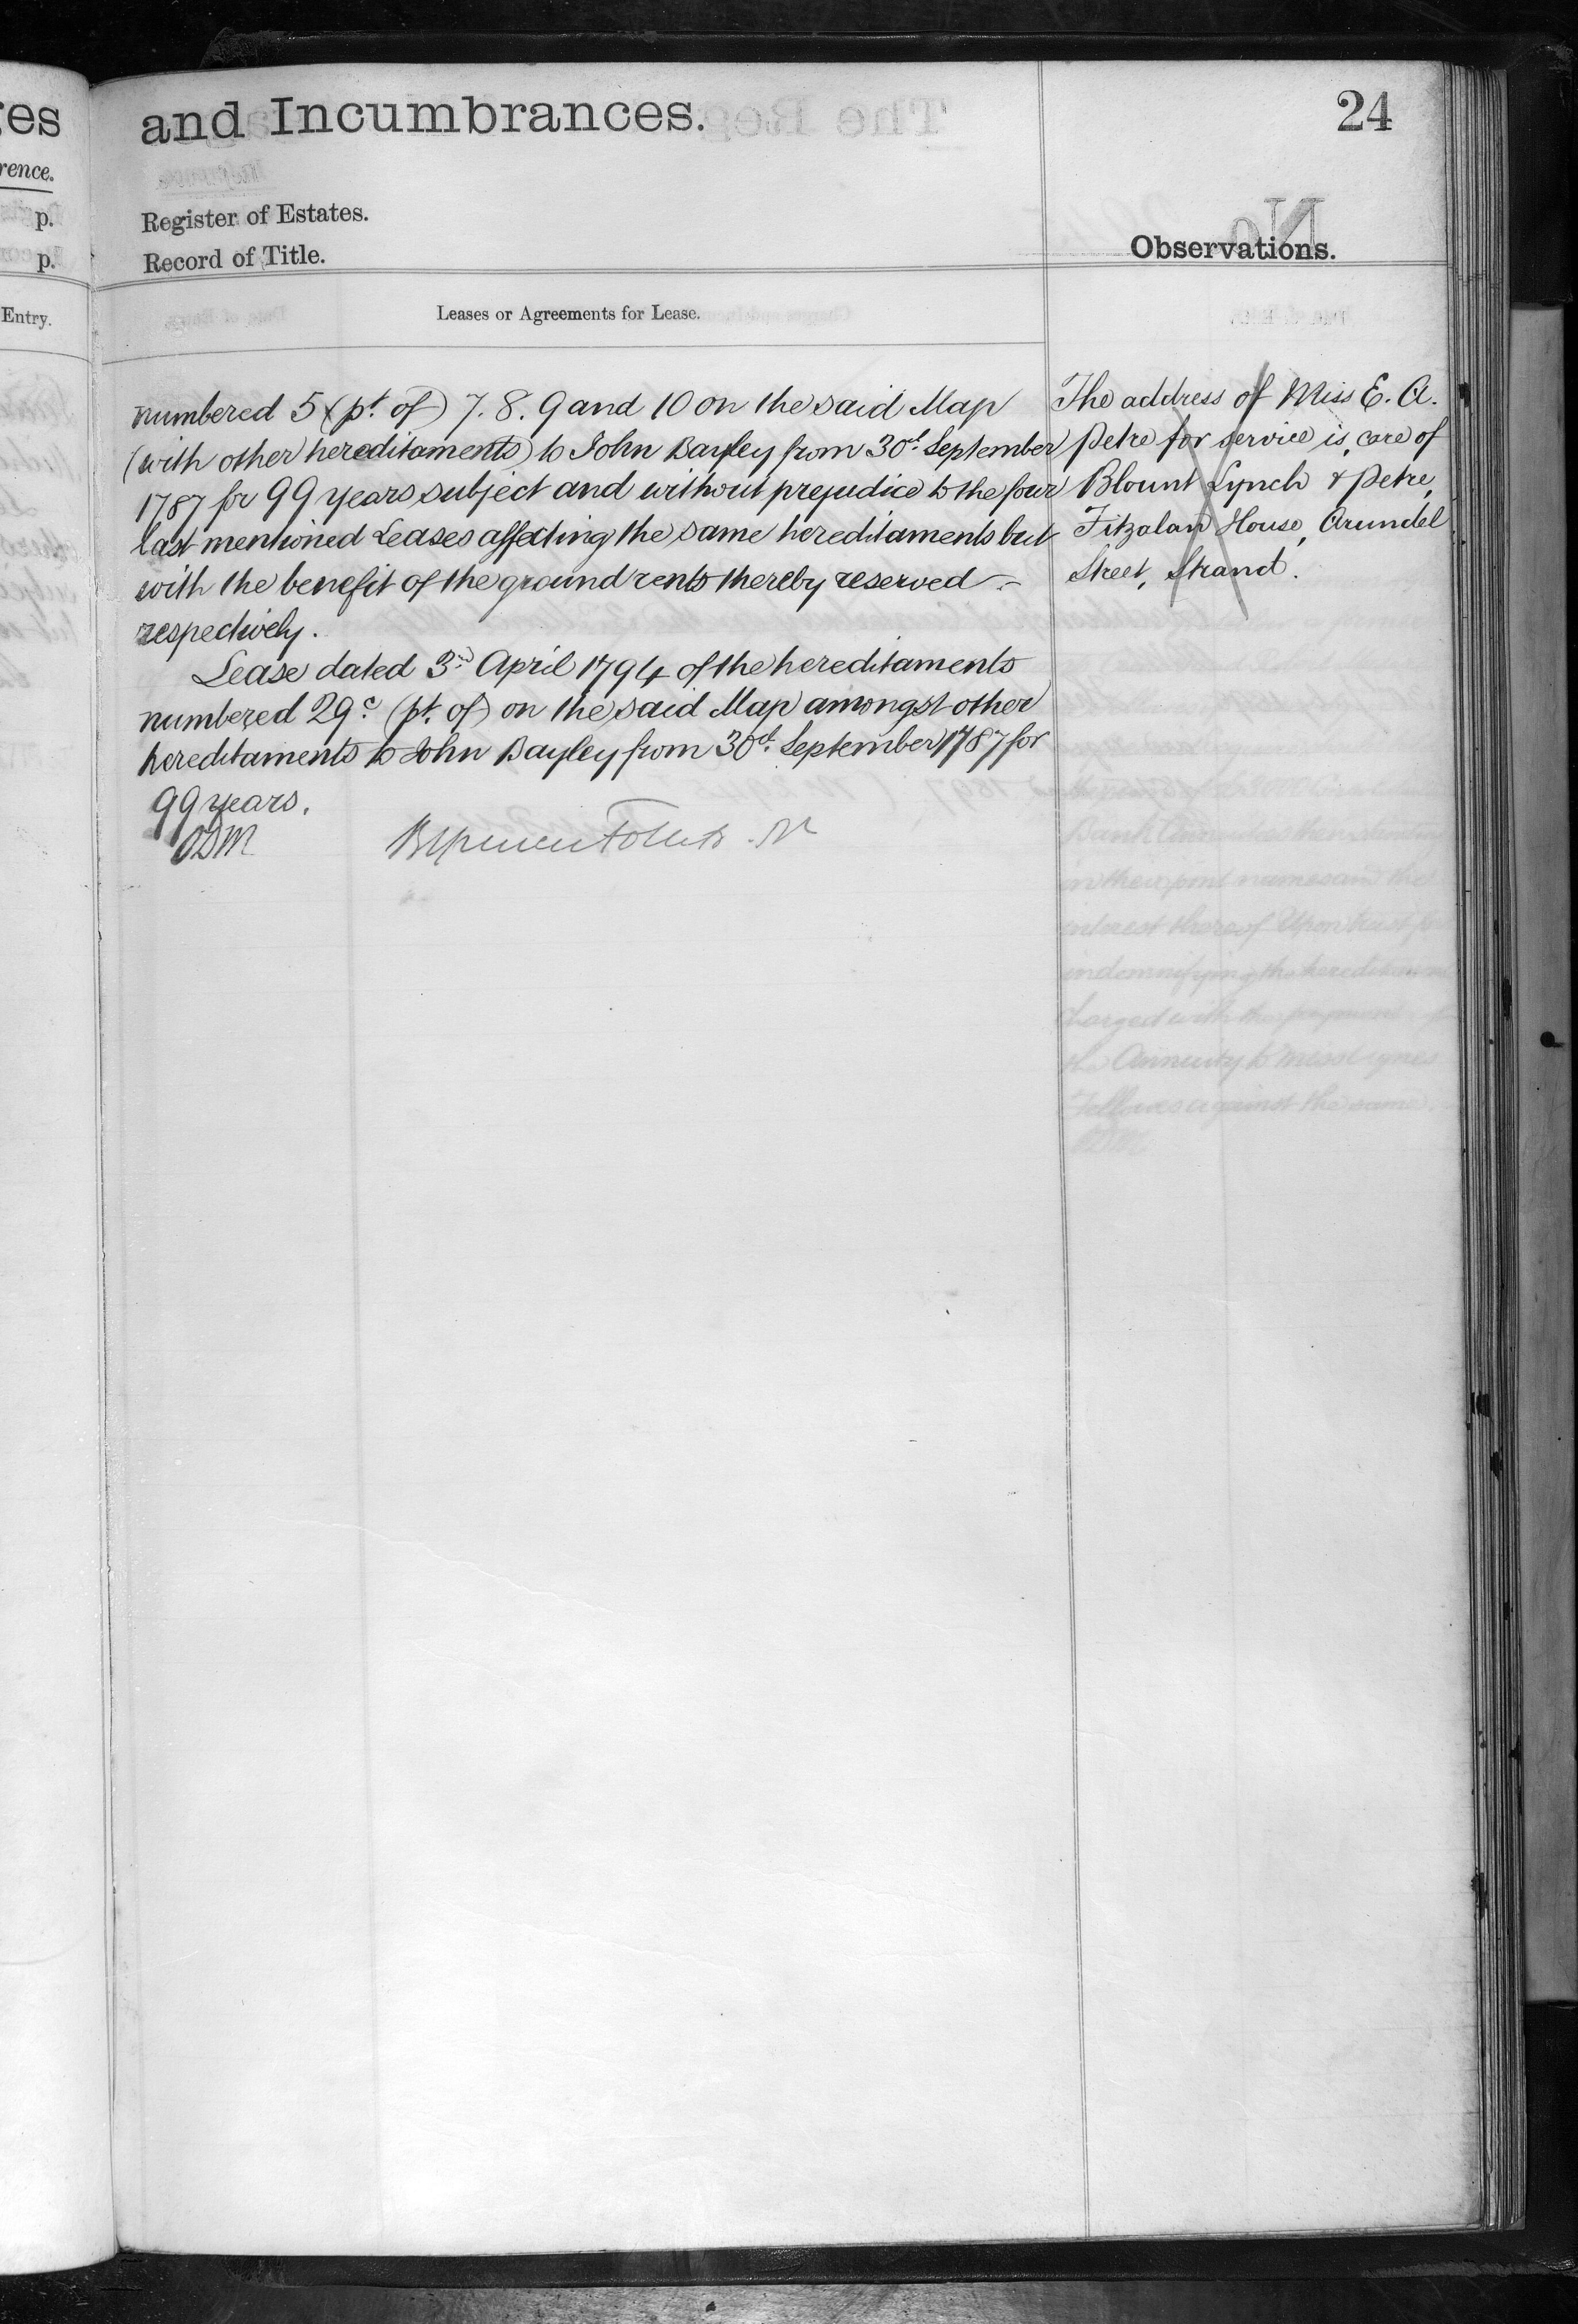 ges
rence.
p.
p.
Entry.
and Incumbrances.
24
Register of Estates.
Record of Title.
Observations.
Leases or Agreements for Lease.
numbered 5 (pt. of) 7. 8. 9 and 10 on the said Map
(with other hereditaments) to John Bayley from 30th September
1787 for 99 years subject and without prejudice to the four
last mentioned Leases affecting the same hereditaments but
with the benefit of the ground rents thereby reserved
respectively.
Lease dated 3rd April 1794 of the hereditaments
numbered 29c (pt. of) on the said Map amongst other
hereditaments to John Bayley from 30th September 1787 for
99 years.
ODM
The address of Miss E. A.
Petre for service is, care of
Blount Lynch & Petre,
Fitzalan House, Arundel
Street, Strand.